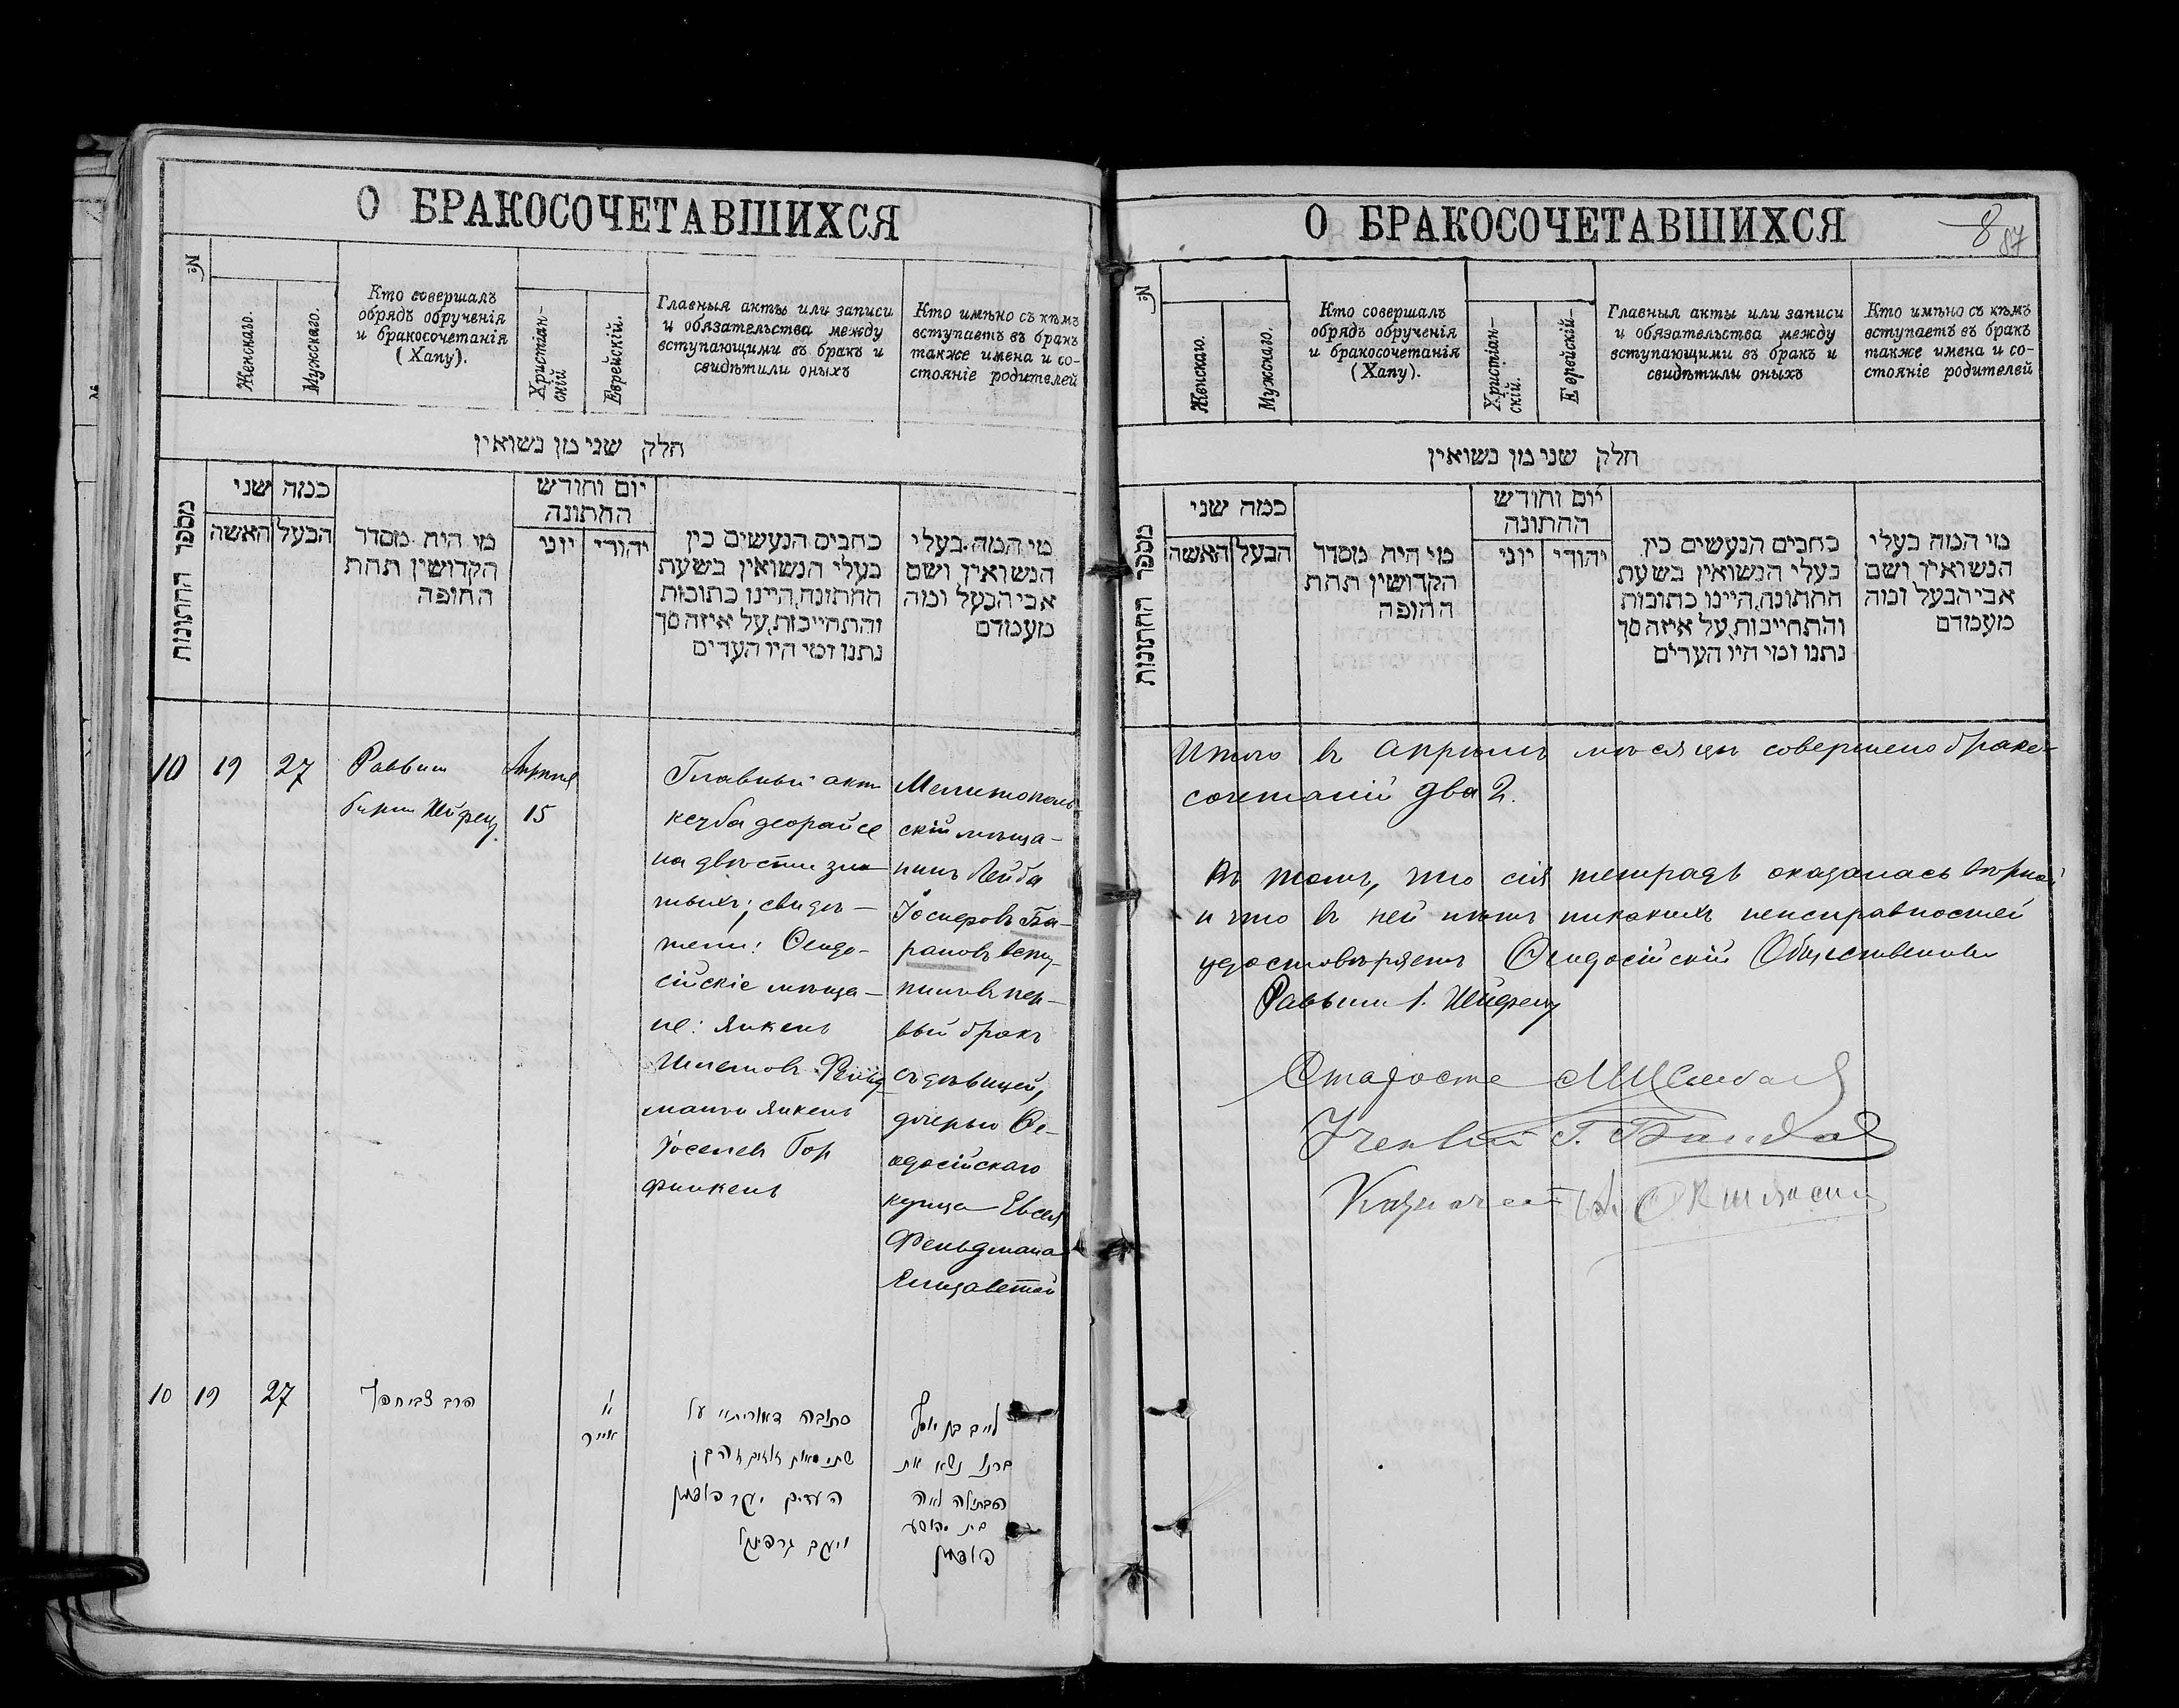 О БРАКОСОЧЕТАВШИХСЯ
№
Женскаго.
Мужскаго.
Кто совершалъ
обрядъ обрученія
и бракосочетанія
(Хапу).
Христіан-
скій
Еврейскій.
Главныя акты или записи
и обязательства между
вступающими въ бракъ и
свидѣтили оныхъ
Кто имѣно съ кѣмъ
вступаетъ въ бракъ
также имена и со-
стояніе родителей
חלק שני מן נשואין
מספר החתונות
כמה שני
האשה
הבעל
מי היה מסדר
הקדושין תחת
החופה
יום וחודש
החתונה
יוני
יהודי
כתבים הנעשים בין
בעלי הנשואין בשעת
החתונה, היינו כתובות
והתחייבות, על איזה סך
נתנו ומי היו העדים
מי המה בעלי
הנשואין ושם
אבי הבעל ומה
מעמדם
10 19 27
Раввинъ
Шейфец.
Апрѣля
15
Главный актъ
кетба деорайсе
на двѣсти зло-
тыхъ; свидѣ-
тели: Ѳеодо-
сійскіе мѣща-
не: Янкель
Шлемовъ Фельд-
манъ и Янкель
Іоселев Гор
финкель
Мелитополь-
скій мѣща-
нинъ Лейба
Іосифовъ Ба-
рановъ всту-
пилъ въ пер-
вый бракъ
съ дѣвицей,
дочерью Ѳе-
одосійскаго
купца Евсея
Фельдмана
Елизаветой
10 19 27
הרב צבי
א'
אייר
כתובה דאורייתא על
שתי מאות זהובים
העדים יעקב
ויעקב גרפינקל
לייב בן יוסף
ברנוב נשא את
הבתולה לאה
בת יהושע
О БРАКОСОЧЕТАВШИХСЯ
8
87
№
Женскаго.
Мужскаго.
Кто совершалъ
обрядъ обрученія
и бракосочетанія
(Хапу).
Христіан-
скій.
Еврейскій-
Главныя акты или записи
и обязательства между
вступающими въ бракъ и
свидѣтили оныхъ
Кто имѣно съ кѣмъ
вступаетъ въ бракъ
также имена и со-
стояніе родителей
חלק שני מן נשואין
מספר החתונות
כמה שני
האשה
הבעל
מי היה מסדר
הקדושין תחת
החופה
יום וחודש
החתונה
יוני
יהודי
כתבים הנעשים בין
בעלי הנשואין בשעת
החתונה, היינו כתובות
והתחייבות, על איזה סך
נתנו ומי היו העדים
מי המה בעלי
הנשואין ושם
אבי הבעל ומה
מעמדם
Итого въ апрѣлѣ мѣсяцѣ совершено брако-
сочетаній два 2.
Въ томъ, что сія тетрадь оказалась вѣрной
и что въ ней нѣтъ никакихъ неисправностей
удостовѣряетъ Ѳеодосійскій Общественный
Раввинъ Б. Шейфец
Староста
Ученый Г.
Казначей